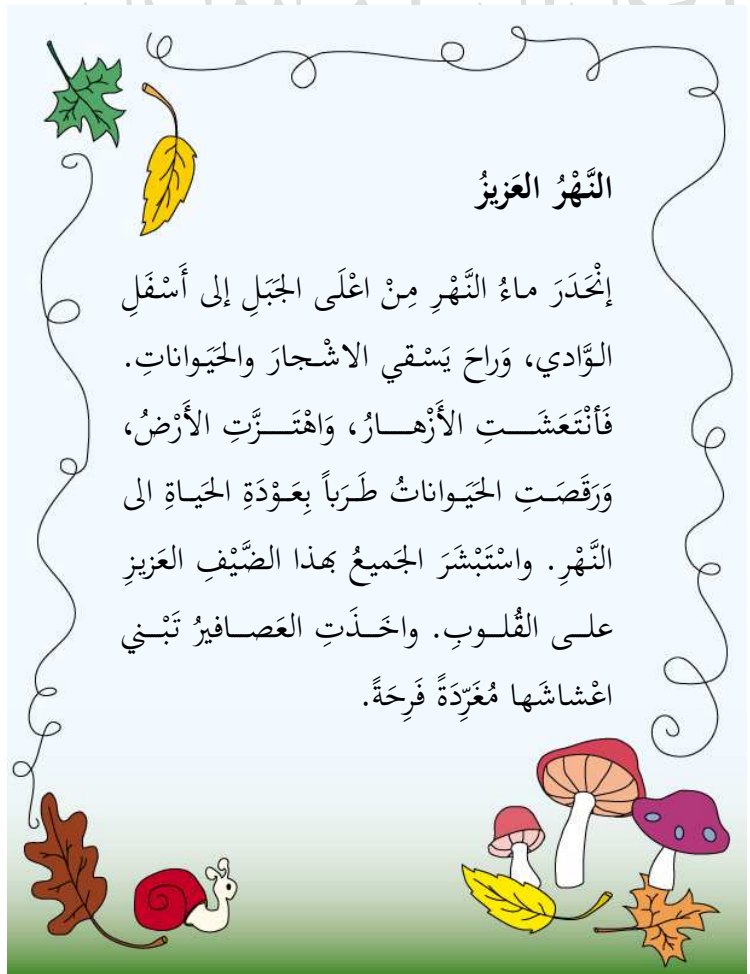 النَّهْرُ العَزيزُ
إنْحَدَرَ ماءُ النَّهْرِ مِنْ اعْلَى الجَبَلِ إلى أَسْفَلِ
الوَّادي، وَراحَ يَسْقي الاشْجارَ والحَيَواناتِ.
فَأنْتَعَشَــتِ الأَزْهــارُ، وَاهْتَــزَّتِ الأَرْضُ،
وَرَقَصَتِ الحَيَواناتُ طَرَباً بِعَوْدَةِ الحَياةِ الى
النَّهْرِ. واسْتَبْشَرَ الجَميعُ بهذا الضَّيْفِ العَزيزِ
علــى القُلــوبِ. واخَــذَتِ العَصــافيرُ تَبْــني
اعْشاشَها مُغَرِّدَةً فَرِحَةً.